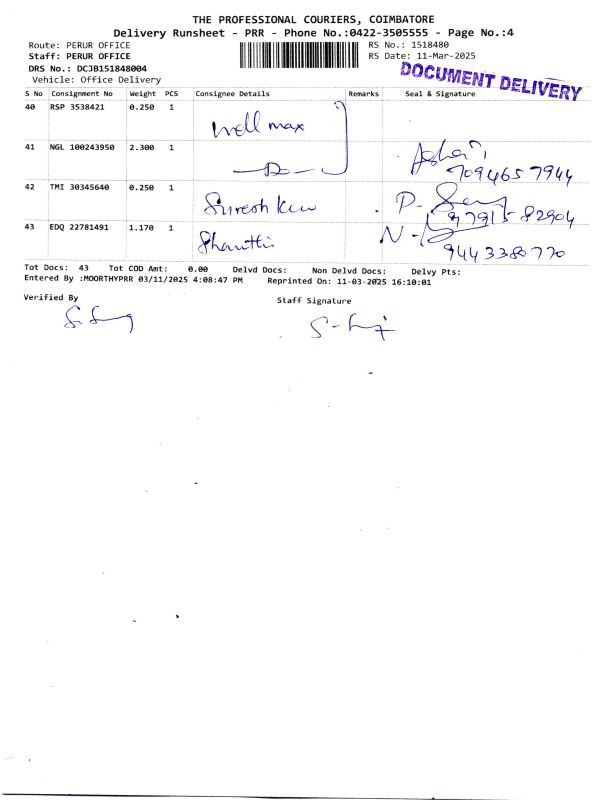 THE PROFESSIONAL COURIERS, COIMBATORE
Delivery Runsheet - PRR - Phone No.:0422-3505555 - Page No.:4
Route: PERUR OFFICE RS No.: 1518480
Staff: PERUR OFFICE RS Date: 11-Mar-2025
DRS No.: DCJB151848004
Vehicle: Office Delivery
DOCUMENT DELIVERY
S No Consignment No Weight PCS Consignee Details Remarks Seal & Signature
40 RSP 3538421 0.250 1 Well max
41 NGL 100243950 2.300 1 —D—
7094657944
42 TMI 30345640 0.250 1 Suresh Kum P.
97915-82904
43 EDQ 22781491 1.170 1 Shanthi N.
9443380770
Tot Docs: 43 Tot COD Amt: 0.00 Delvd Docs: Non Delvd Docs: Delvy Pts:
Entered By :MOORTHYPRR 03/11/2025 4:08:47 PM Reprinted On: 11-03-2025 16:10:01
Verified By Staff Signature